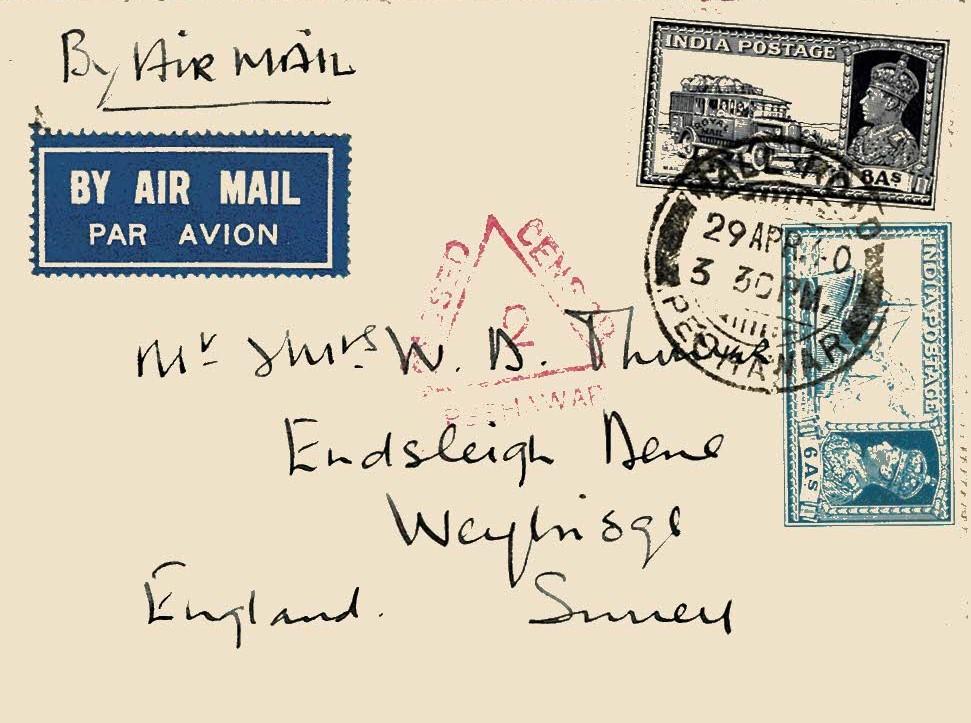 By AIR MAIL
BY AIR MAIL
PAR AVION
INDIA POSTAGE
ROYAL MAIL
8As
MALL ROAD
29 APR 40
3 30 PM.
PESHAWAR
PASSED CENSOR
2
PESHAWAR
INDIA POSTAGE
6As
Mr & Mrs W. D.
Endsleigh Dene
Weybridge
England. Surrey